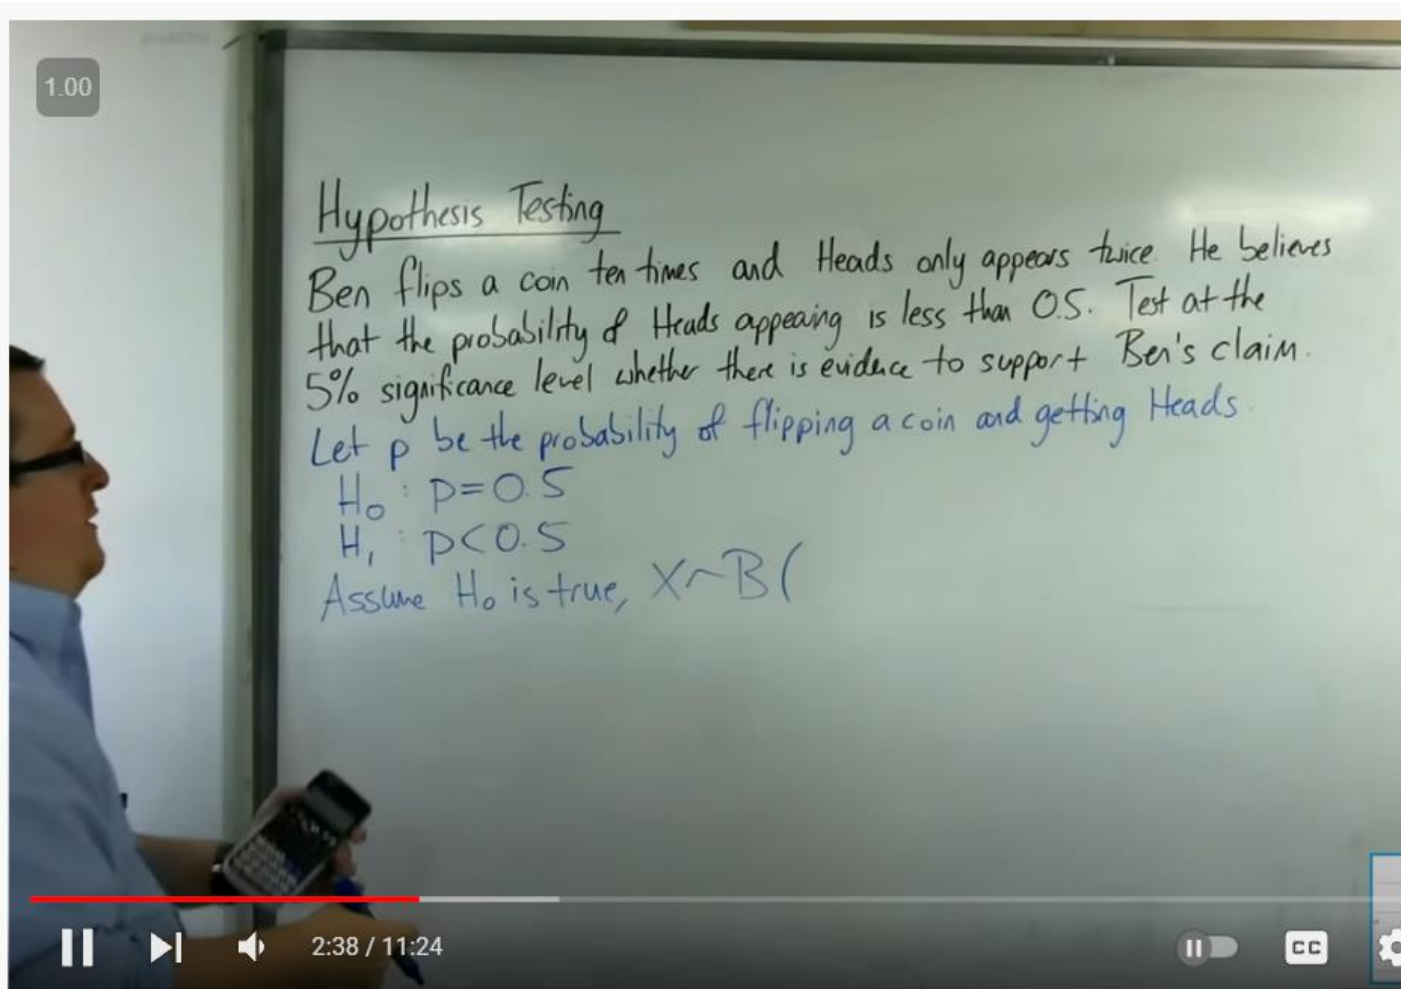 1.00
Hypothesis Testing
Ben flips a coin ten times and Heads only appears twice. He believes
that the probability of Heads appearing is less than 0.5. Test at the
5% significance level whether there is evidence to support Ben's claim.
Let p be the probability of flipping a coin and getting Heads.
H₀ : p=0.5
H₁ : p<0.5
Assume H₀ is true, X~B(
2:38 / 11:24
CC